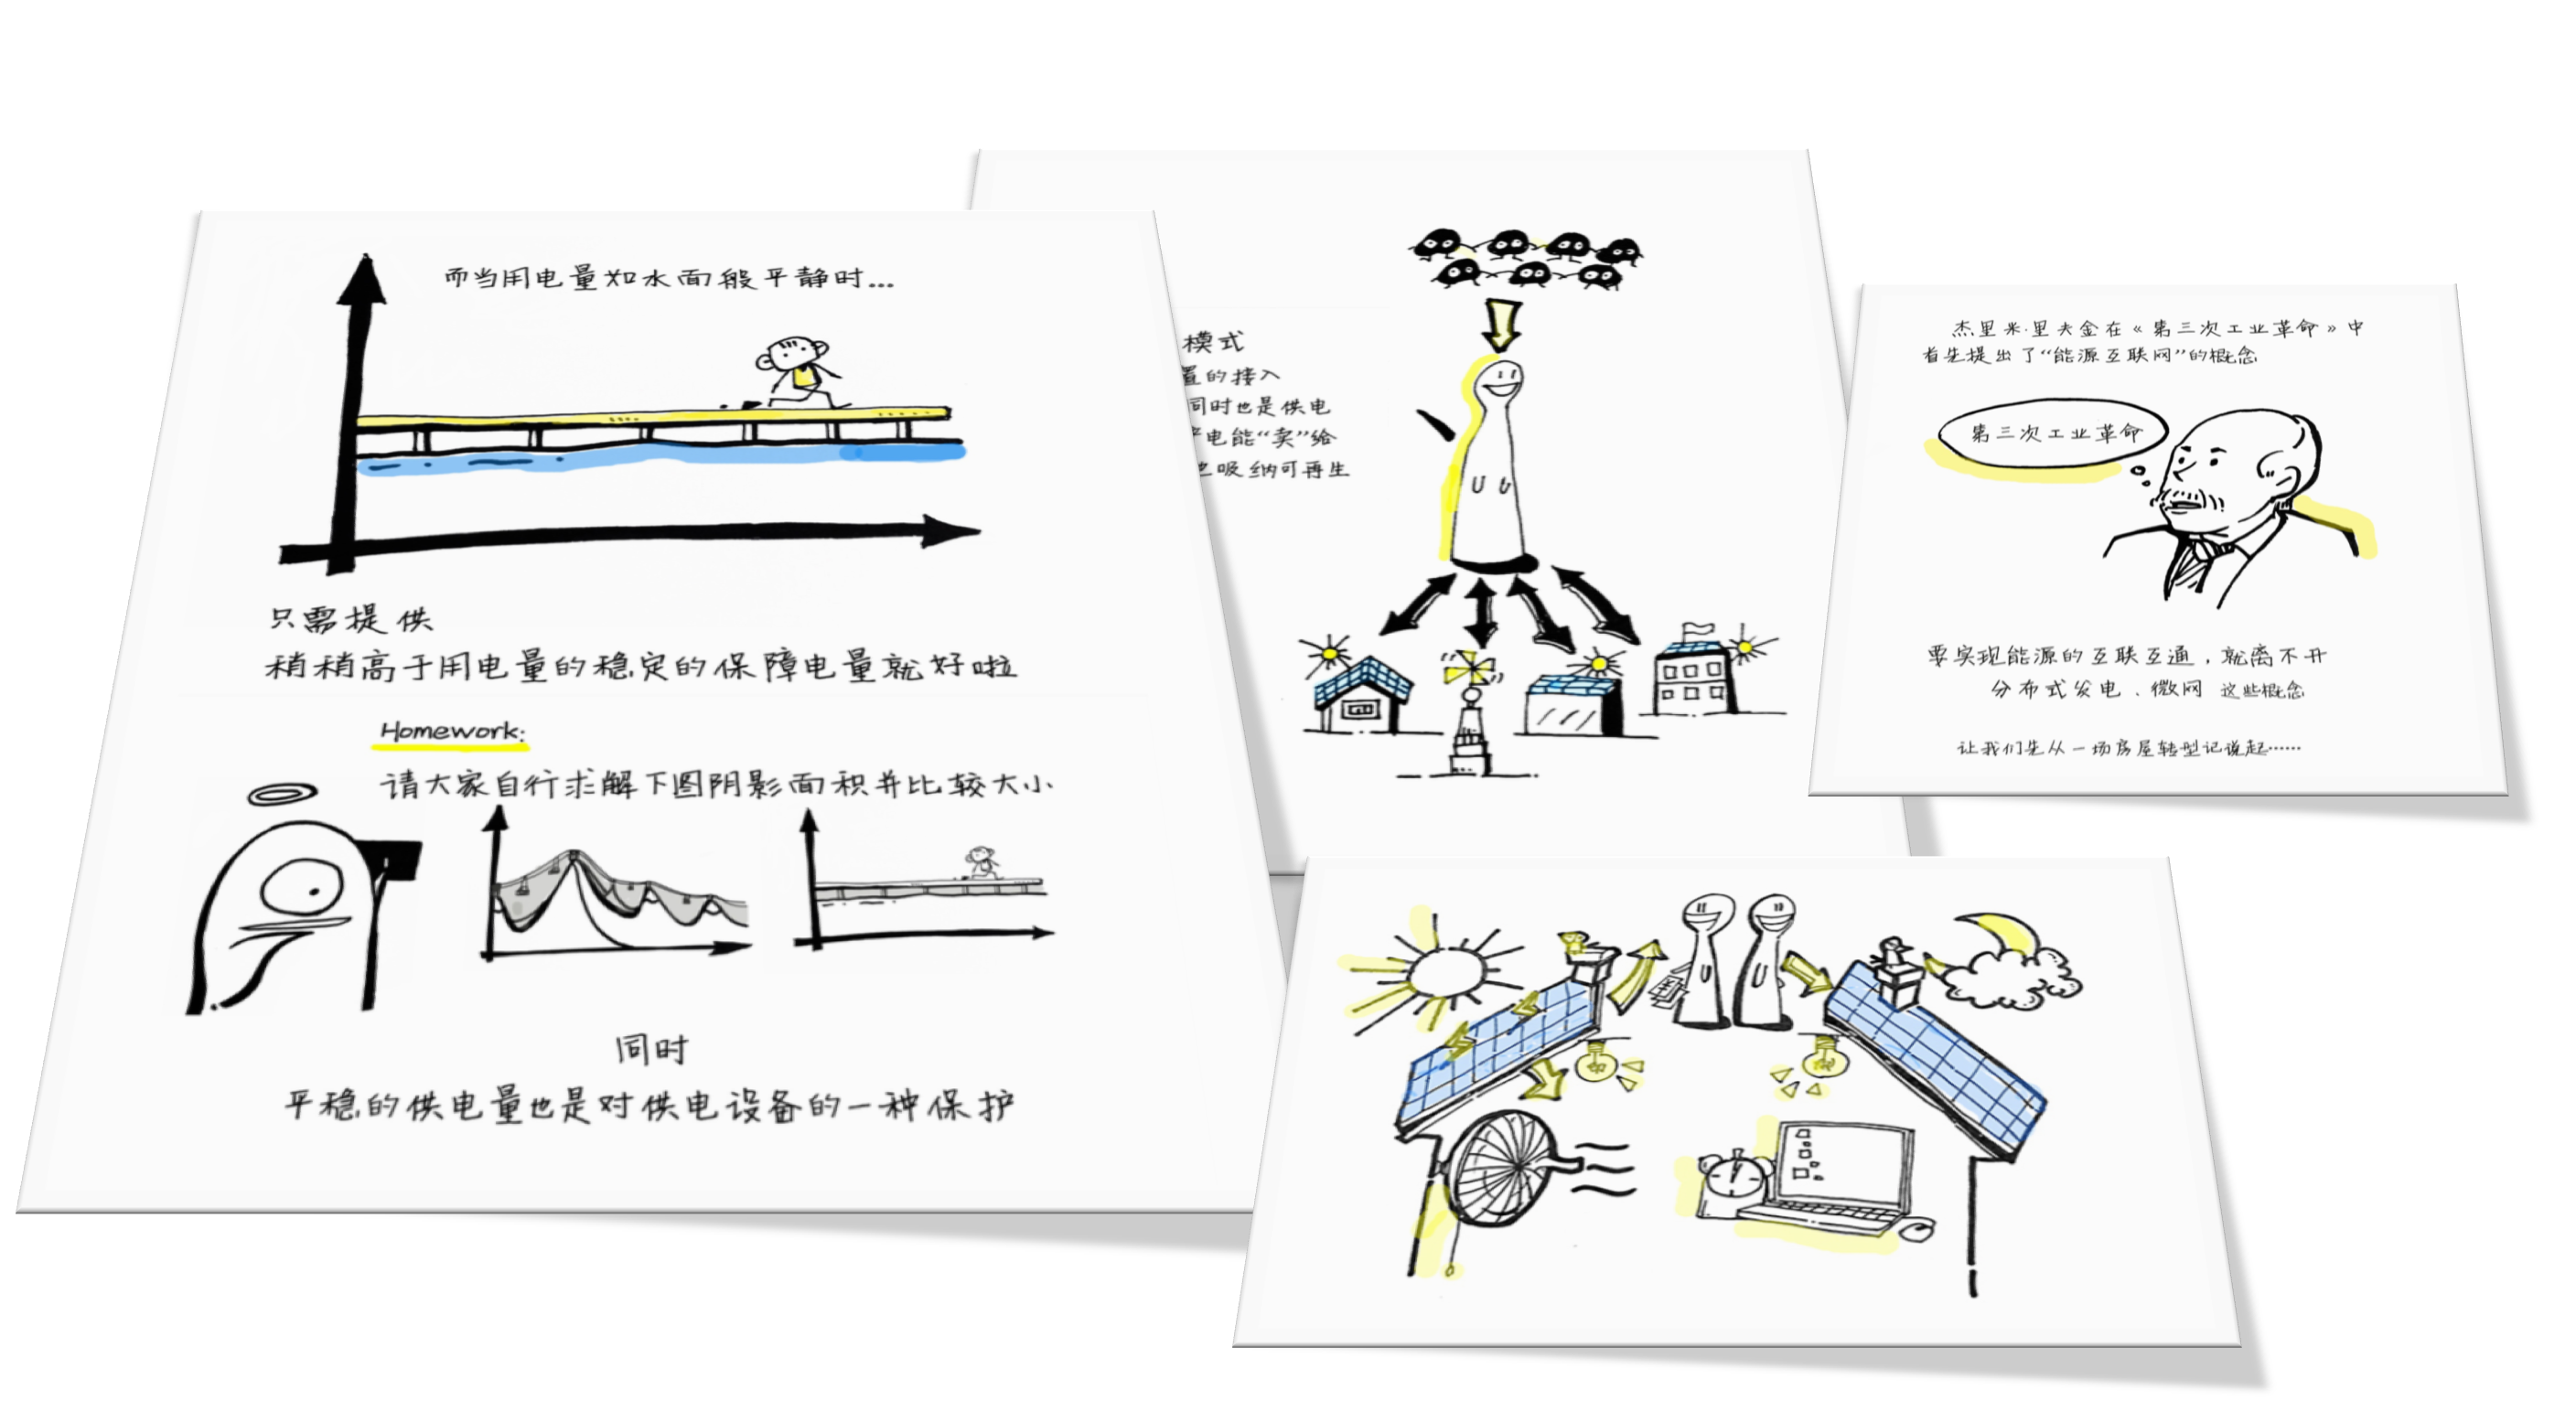 而当用电量如水面般平静时...
只需提供
稍稍高于用电量的稳定的保障电量就好啦
Homework:
请大家自行求解下图阴影面积并比较大小
同时
平稳的供电量也是对供电设备的一种保护
模式
置的接入
同时也是供电
电能“卖”给
也吸纳可再生
杰里米·里夫金在《第三次工业革命》中
首先提出了“能源互联网”的概念
第三次工业革命
要实现能源的互联互通，就离不开
分布式发电、微网 这些概念
让我们先从一场房屋转型记说起……